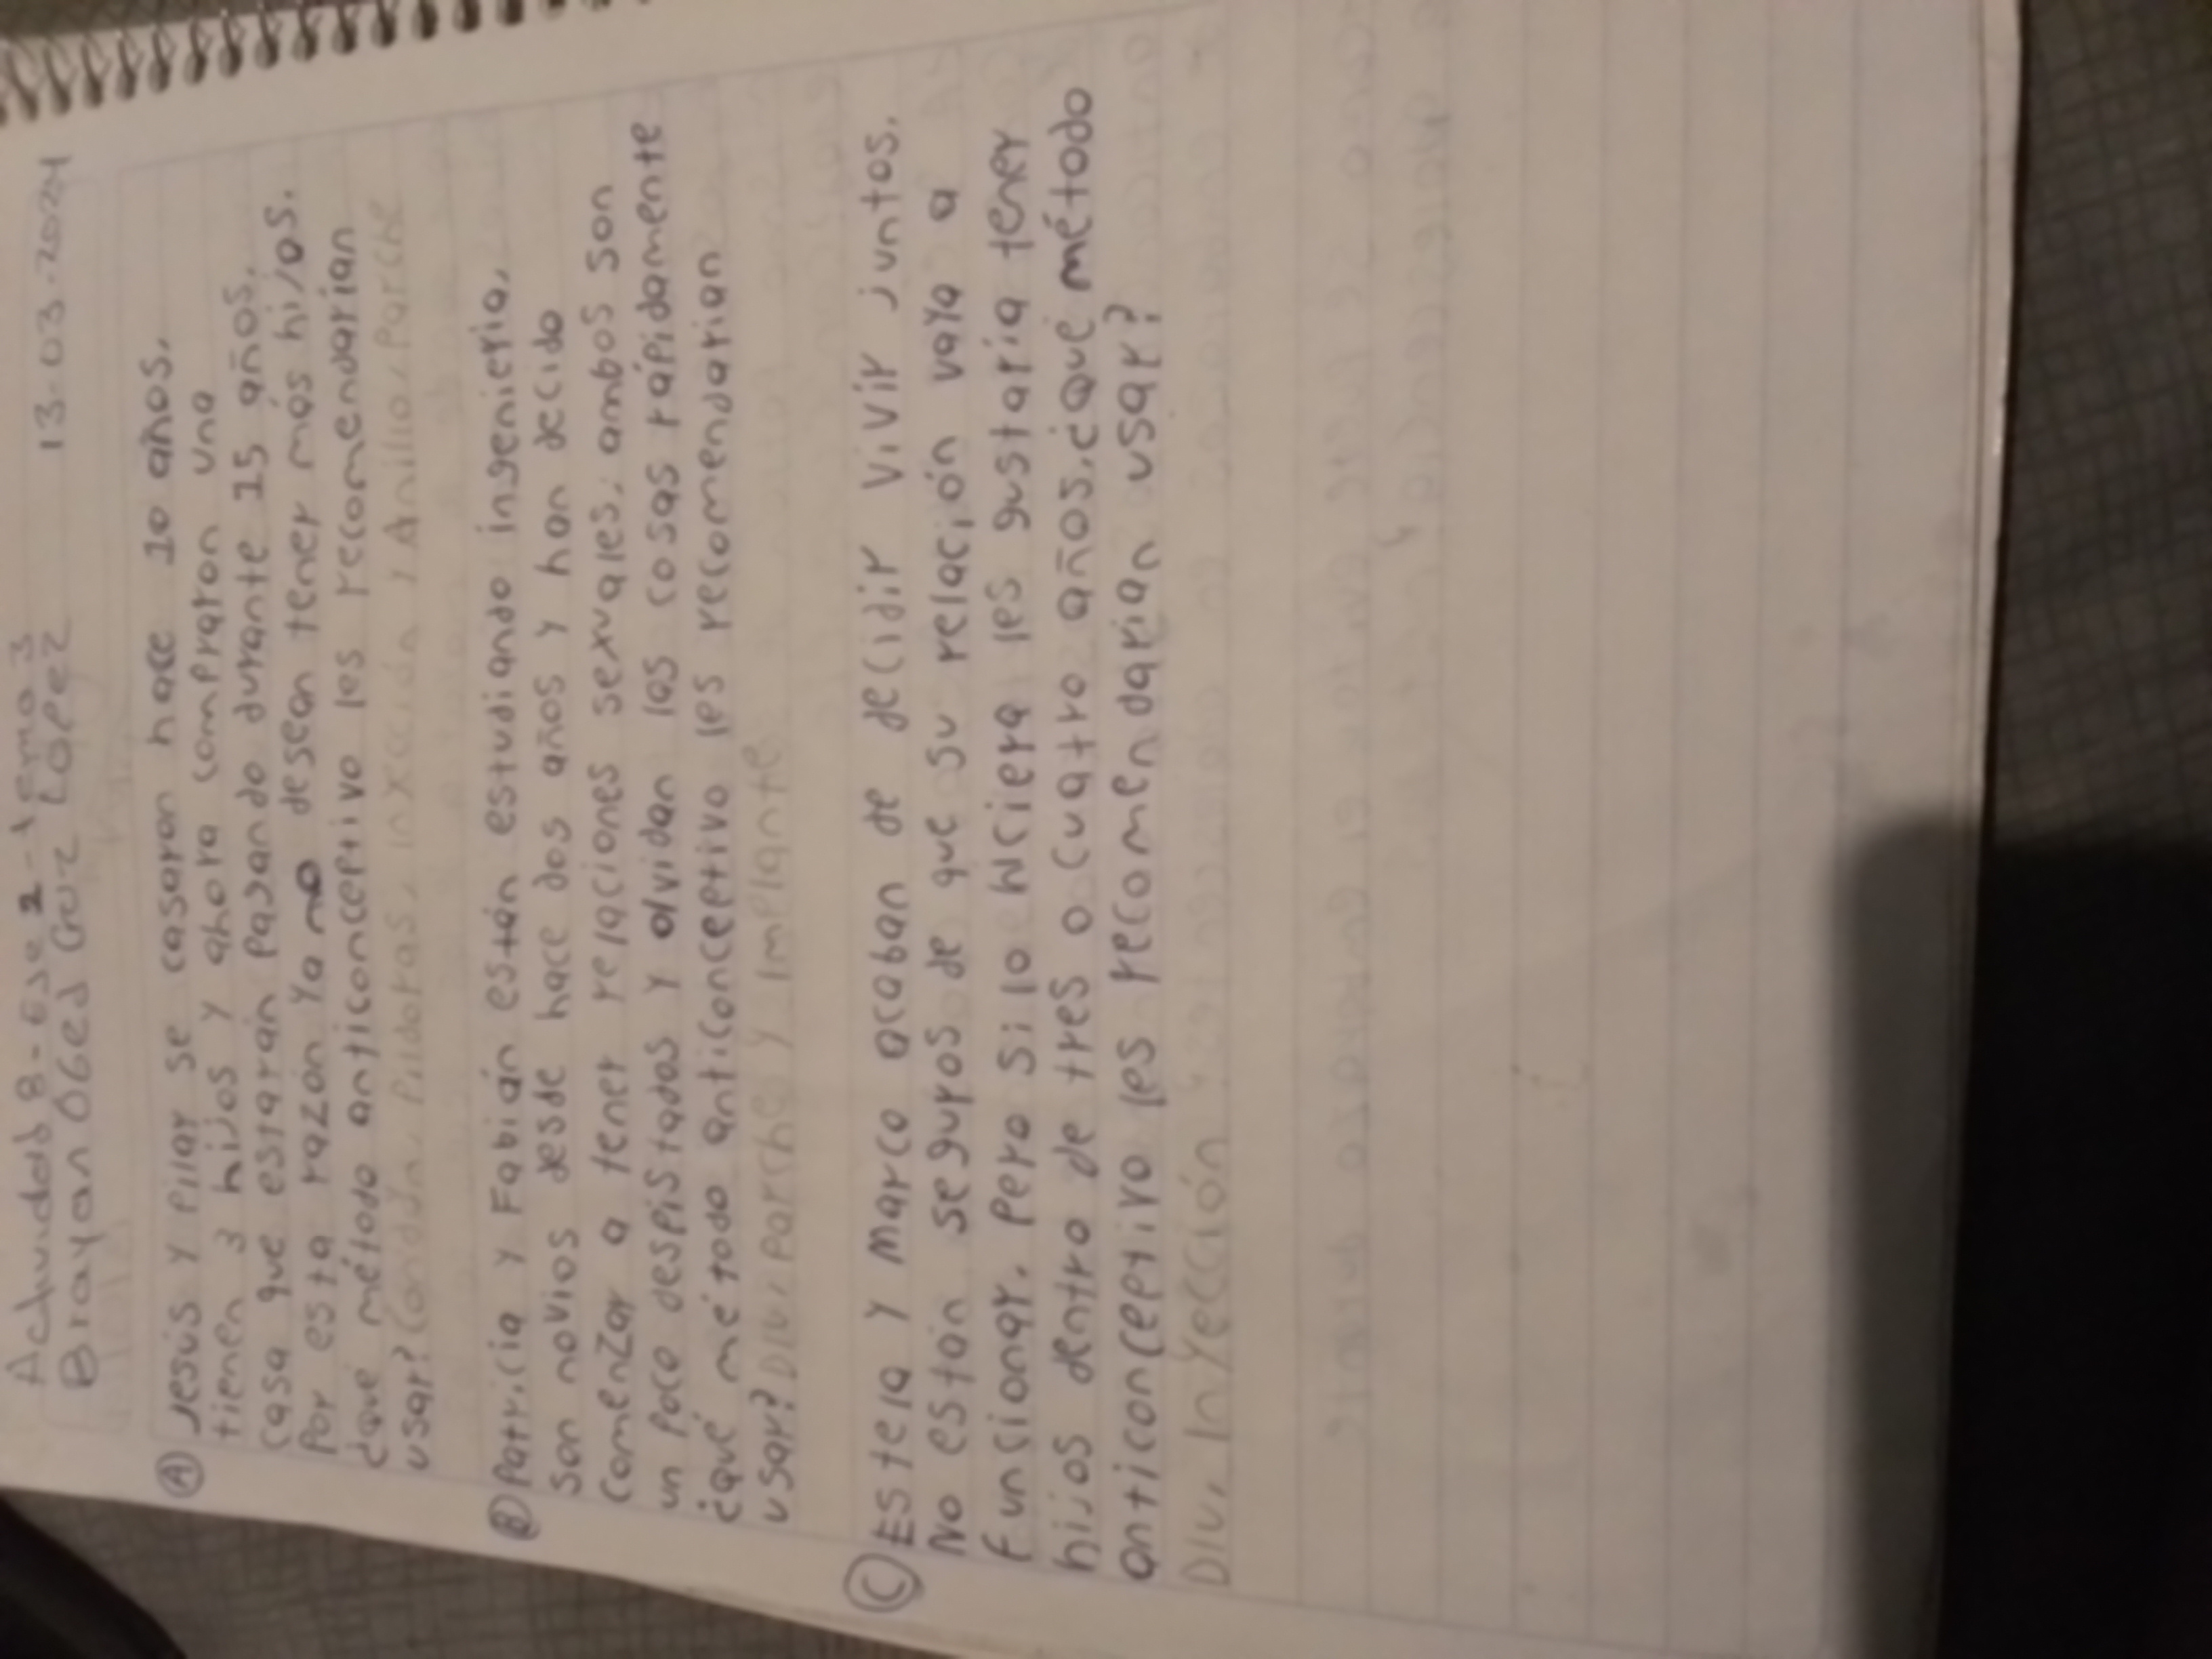 Actividad 8-Ese 2-Tema 3
Brayan Obed Cruz López 13.03.2024
A Jesús y Pilar se casaron hace 10 años,
tienen 3 hijos y ahora compraron una
casa que estarán pagando durante 15 años,
Por esta razón ya no desean tener más hijos.
¿qué método anticonceptivo les recomendarian
usar? Condón, Pildoras, inxección, Anillo, Parche
B Patricia y Fabián están estudiando ingenieria,
son novios desde hace dos años y han decido
comenzar a tener relaciones sexuales, ambos son
un poco despistados y olvidan las cosas rápidamente
¿qué método anticonceptivo les recomendarian
usar? DIU, Parche y Implante
C Estela y Marco acaban de decidir vivir juntos.
No están seguros de que su relación vaya a
funcionar. Pero si lo hiciera les gustaría tener
hijos dentro de tres o cuatro años, ¿qué método
anticonceptivo les recomendarian usar?
DIU, Inyección